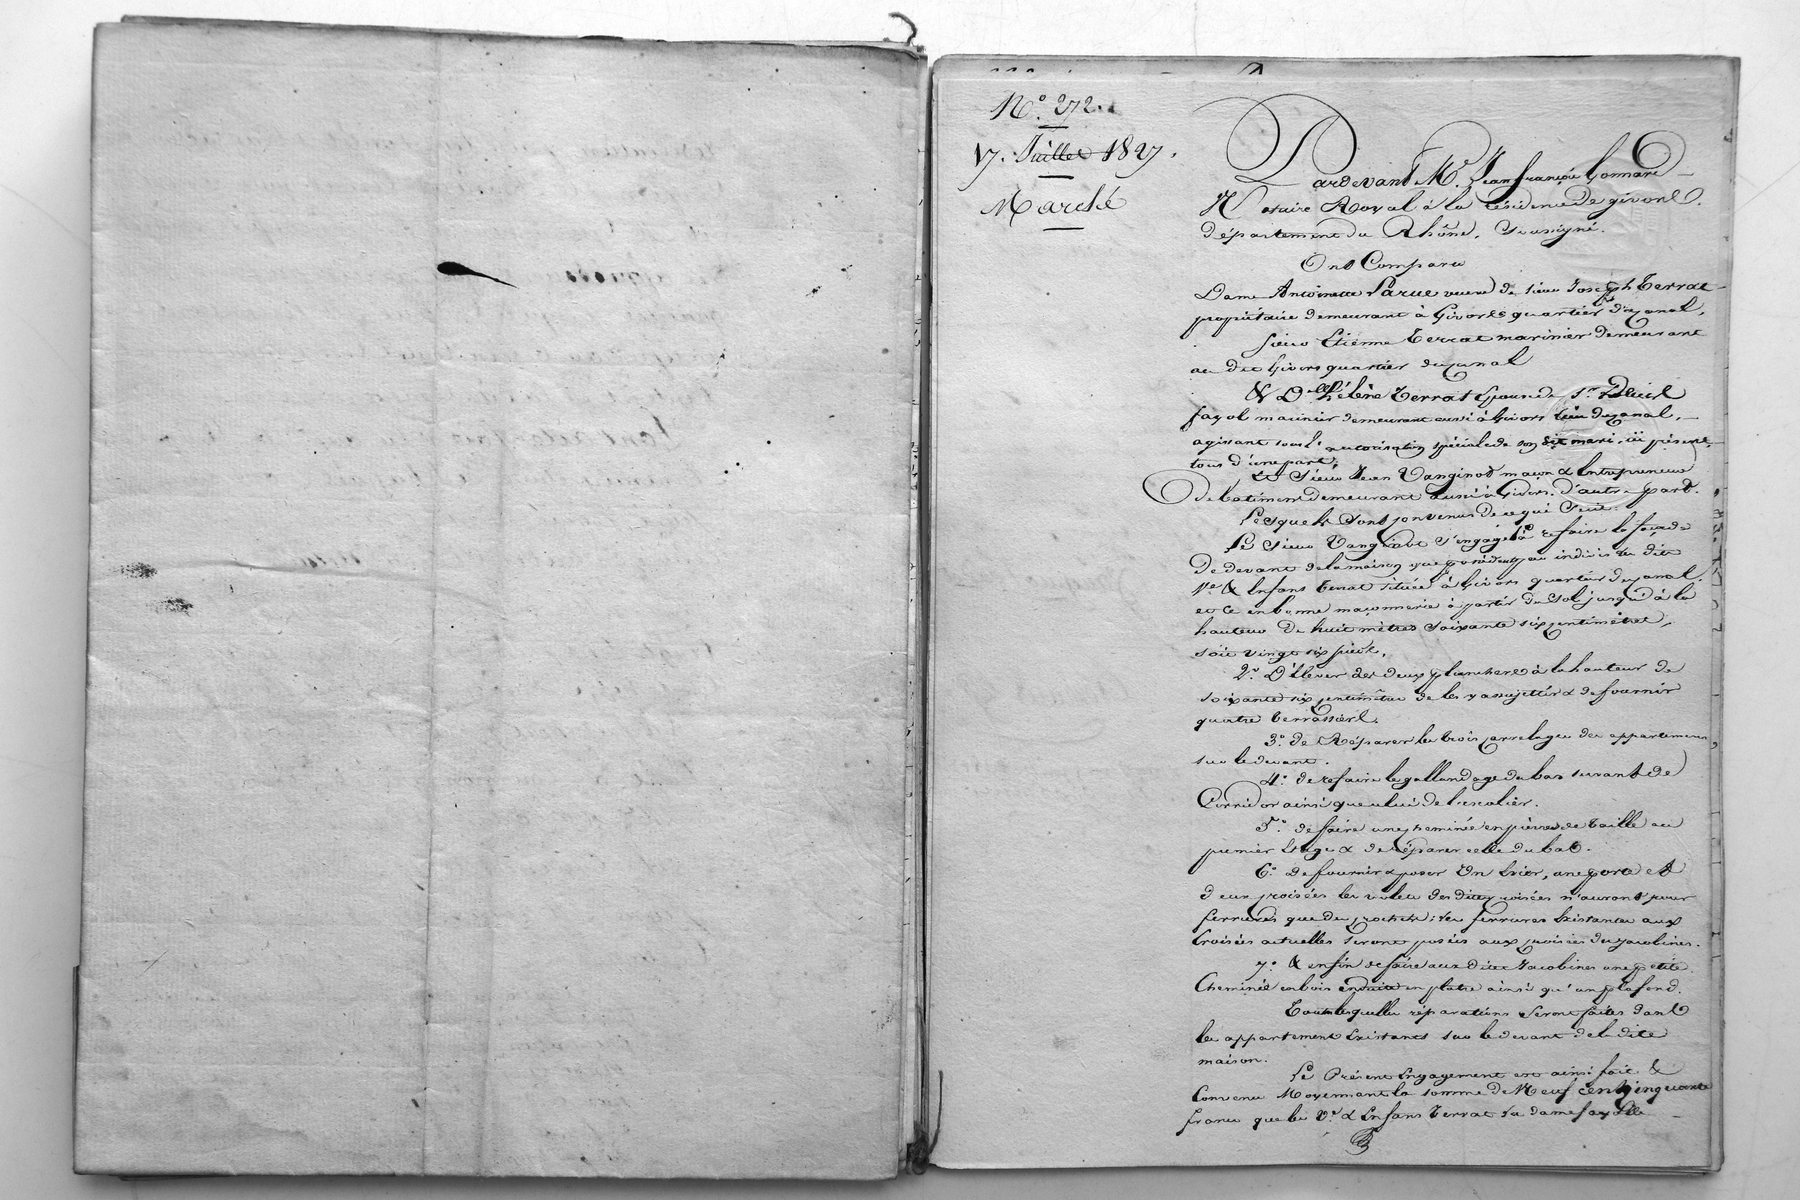 N.° 272.
17. Juillet 1827.
Marché
Pardevant M.e Jean françois Gonnard
Notaire Royal à la résidence de givors,
département du Rhône, soussigné.
Ont Comparu
Dame Antoinette Larue veuve de sieur Joseph Terrat
propriétaire demeurant à Givors quartier du canal,
sieur Etienne Terrat marinier demeurant
au dit Givors quartier du canal
& D.elle hélène Terrat Epouse de s.r
fayol marinier demeurant aussi à Givors lieu du canal,
agissant sous l'autorisation spéciale de son dit mari, ici présent,
tous d'une part,
Et sieur Jean Vanginot maçon & Entrepreneur
de batiment demeurant aussi à Givors. d'autre part.
Lesquels sont convenus de ce qui suit.
Le sieur Vanginot s'engage 1.o à refaire la façade
de devant de la maison que possèdent par indivis les dits
V.e & Enfans Terrat située à Givors quartier du canal.
et ce en bonne maçonnerie à partir du sol jusqu'à la
hauteur de huit mètres soixante six centimètres,
soit vingt six pieds,
2.° D'Elever les deux planchers à la hauteur de
soixante six centimètres de les y assujettir & de fournir
quatre terrassiers.
3.° de Réparer les trois carrelages des appartemens
sur le devant.
4.° de refaire le gallandage du bas servant de
Corridor ainsi que celui de l'escalier.
5.° de faire une cheminée en pierres de taille au
premier Etage & de réparer celle du bas.
6.° de fournir & poser Un Evier, une porte et
deux croisées les volets des dites croisées n'auront pour
ferrures que des crochets; les ferrures Existantes aux
Croisées actuelles seront posées aux croisées des jacobines.
7.° & enfin de faire aux dites Jacobines une petite
Cheminée en bois enduite en platre ainsi qu'un plafond.
Toutes lesquelles réparations seront faites dans
les appartements Existants sur le devant de la dite
maison.
Le Présent Engagement est ainsi fait &
Convenu Moyennant la somme de Neuf cent cinquante
francs que les V.e & Enfans Terrat la dame fayolle